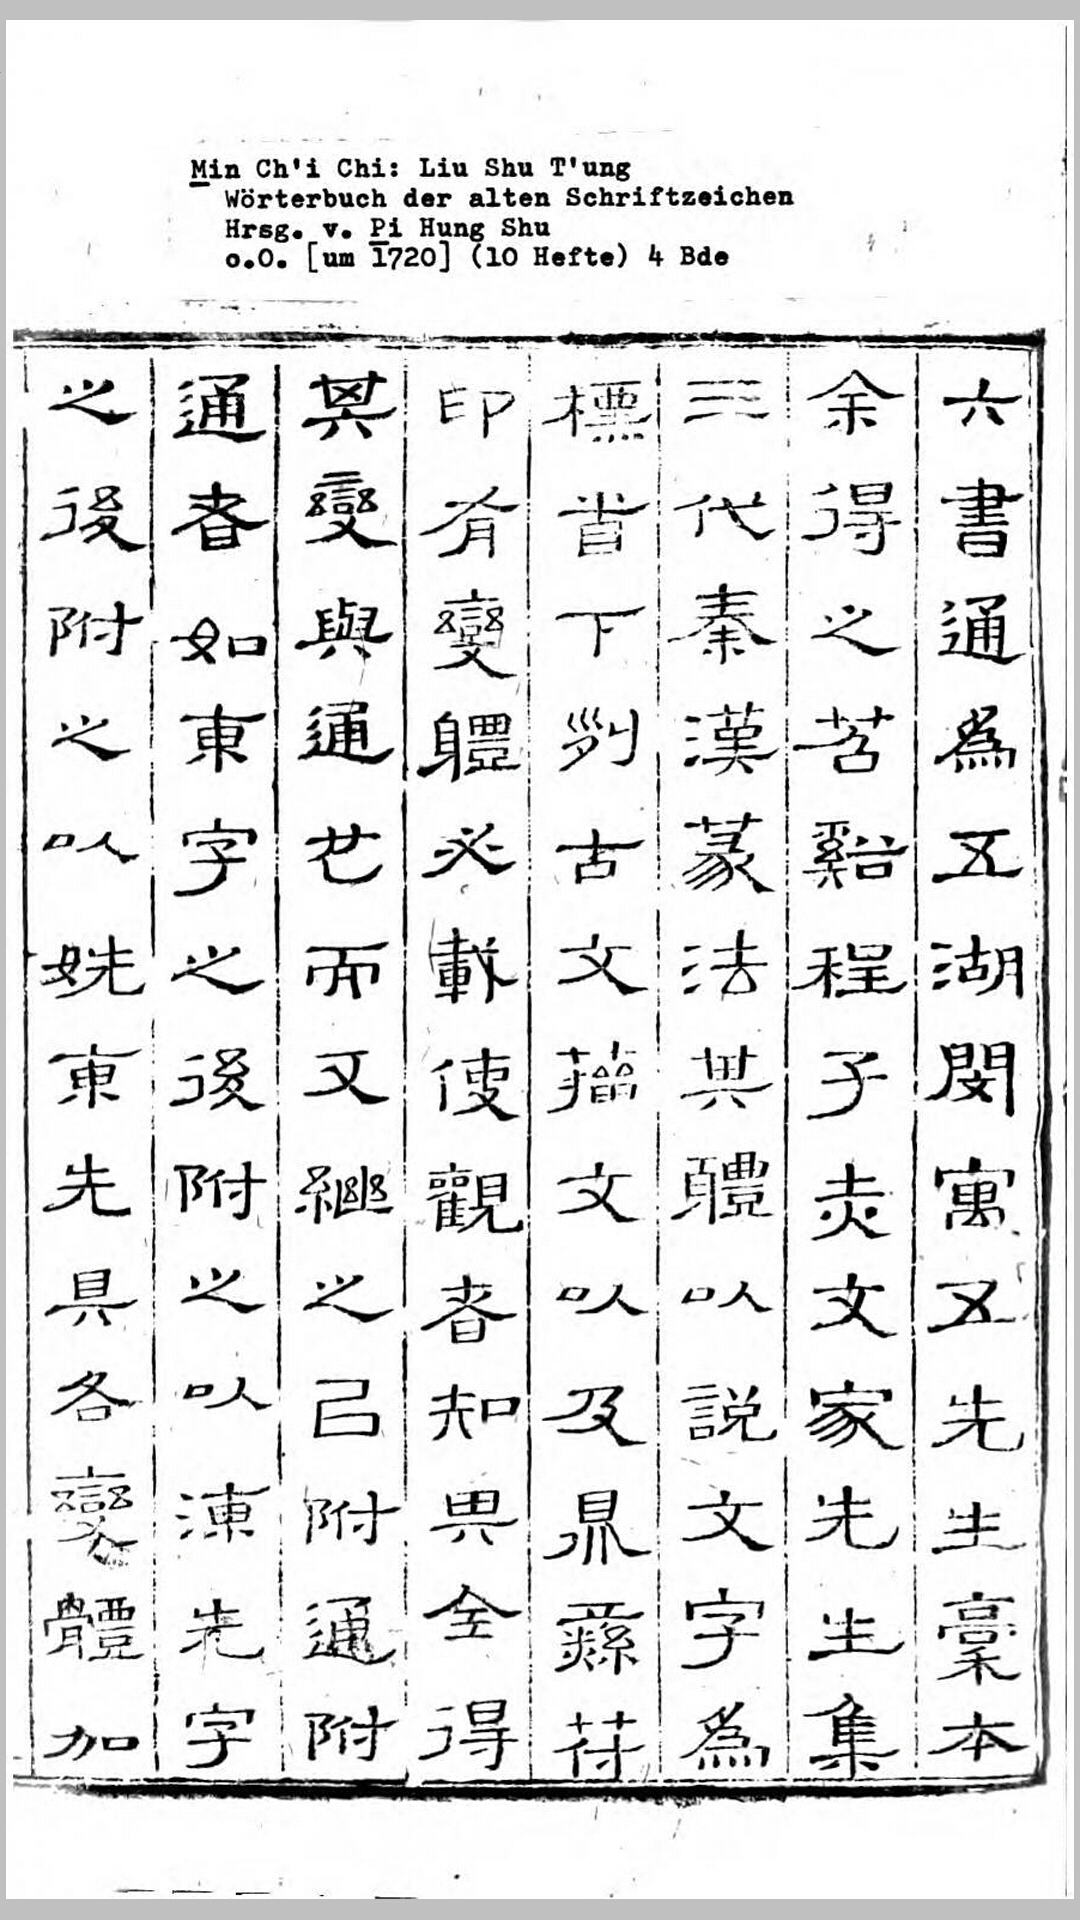 Min Ch'i Chi: Liu Shu T'ung
Wörterbuch der alten Schriftzeichen
Hrsg. v. Pi Hung Shu
o.O. [um 1720] (10 Hefte) 4 Bde
六書通為五湖閔寓五先生稾本
余得之苕谿程子赤文家先生集
三代秦漢篆法其軆以說文字為
標首下列古文籀文以及鼎彝符
印有變軆必載使觀者知其全得
其變與通也而又繼之已附通附
通者如東字之後附之以涷先字
之後附之以姺東先具各變體加